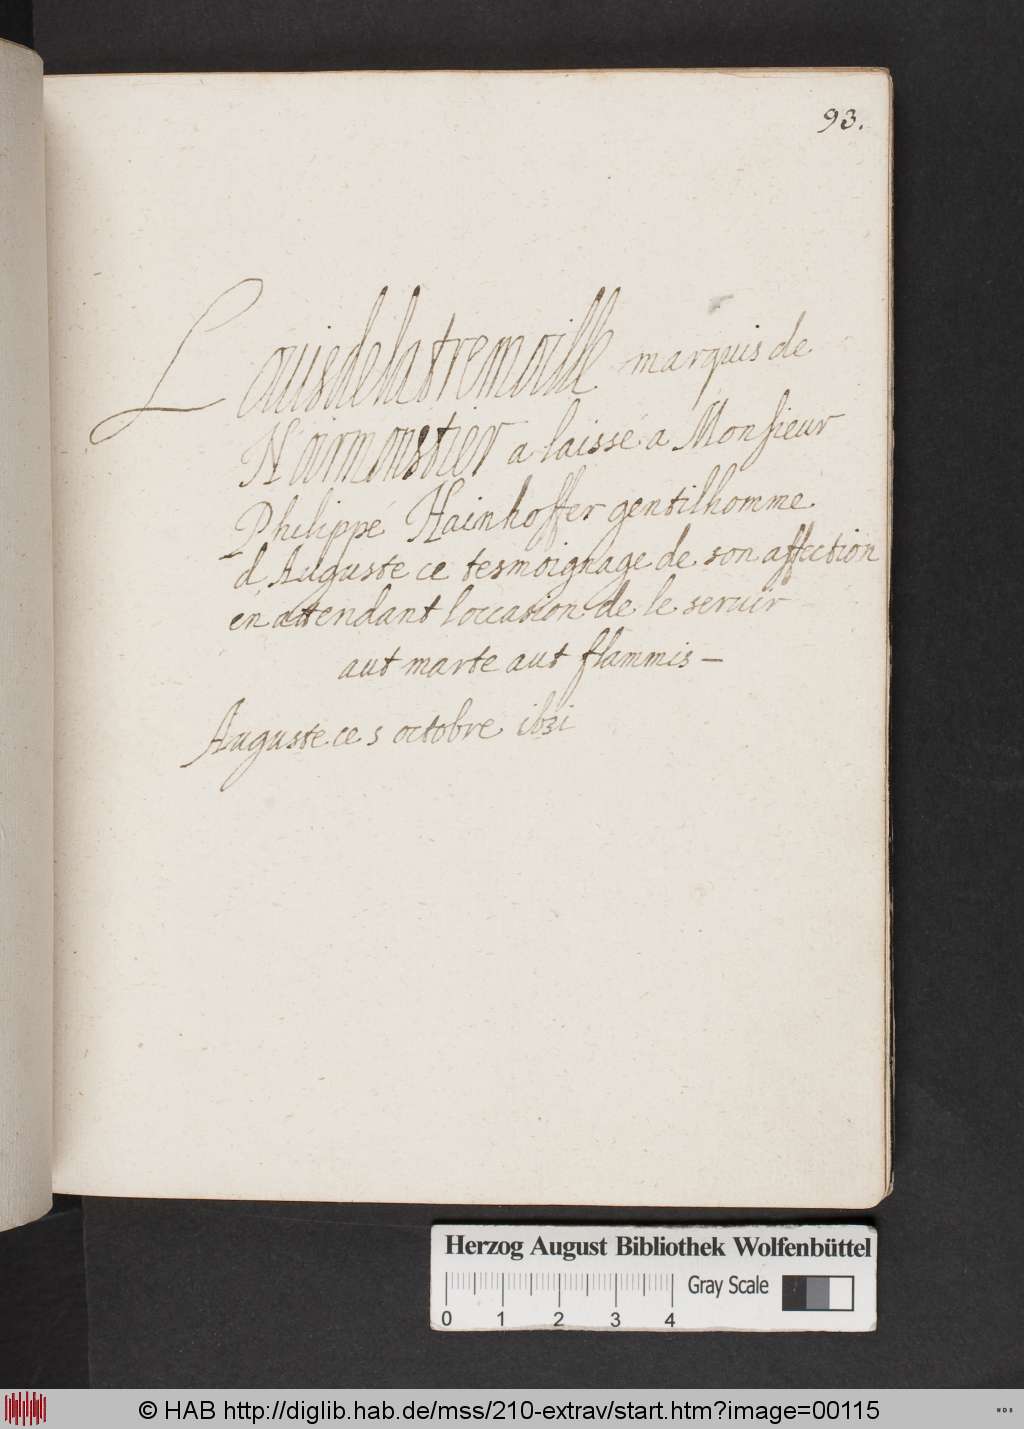 93.
Louis de la tremoille marquis de
Noirmonstier a laissé a Monsieur
Philippe Hainhoffer gentilhomme
d Auguste ce tesmoignage de son affection
en attendant l occasion de le seruir
aut marte aut flammis —
Auguste ce 5 octobre 1631
Herzog August Bibliothek Wolfenbüttel
Gray Scale
0 1 2 3 4
© HAB http://diglib.hab.de/mss/210-extrav/start.htm?image=00115